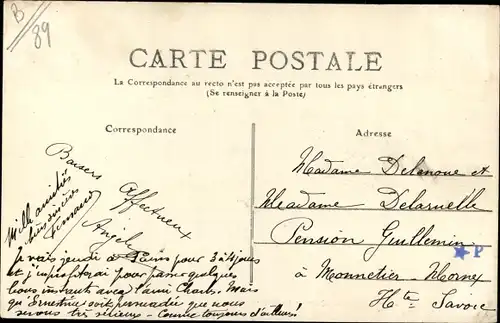 B
89
CARTE POSTALE
La Correspondance au recto n'est pas acceptée par tous les pays étrangers
(Se renseigner à la Poste)
Correspondance
Adresse
Baisers
affectueux
Angèle
Mille amitiés
bien sincères
Fernand
Je vais jeudi à pour 3 à 4 jours
et j'en profiterai pour passer quelques
bons instants avec l'ami Charles. Mais
qu'Ernestine soit persuadée que nous
serons très sérieux - Comme toujours d'ailleurs!
Madame Delanoue et
Madame Delaruelle
Pension Guillemin
à Monnetier-Mornex
Hte Savoie
P